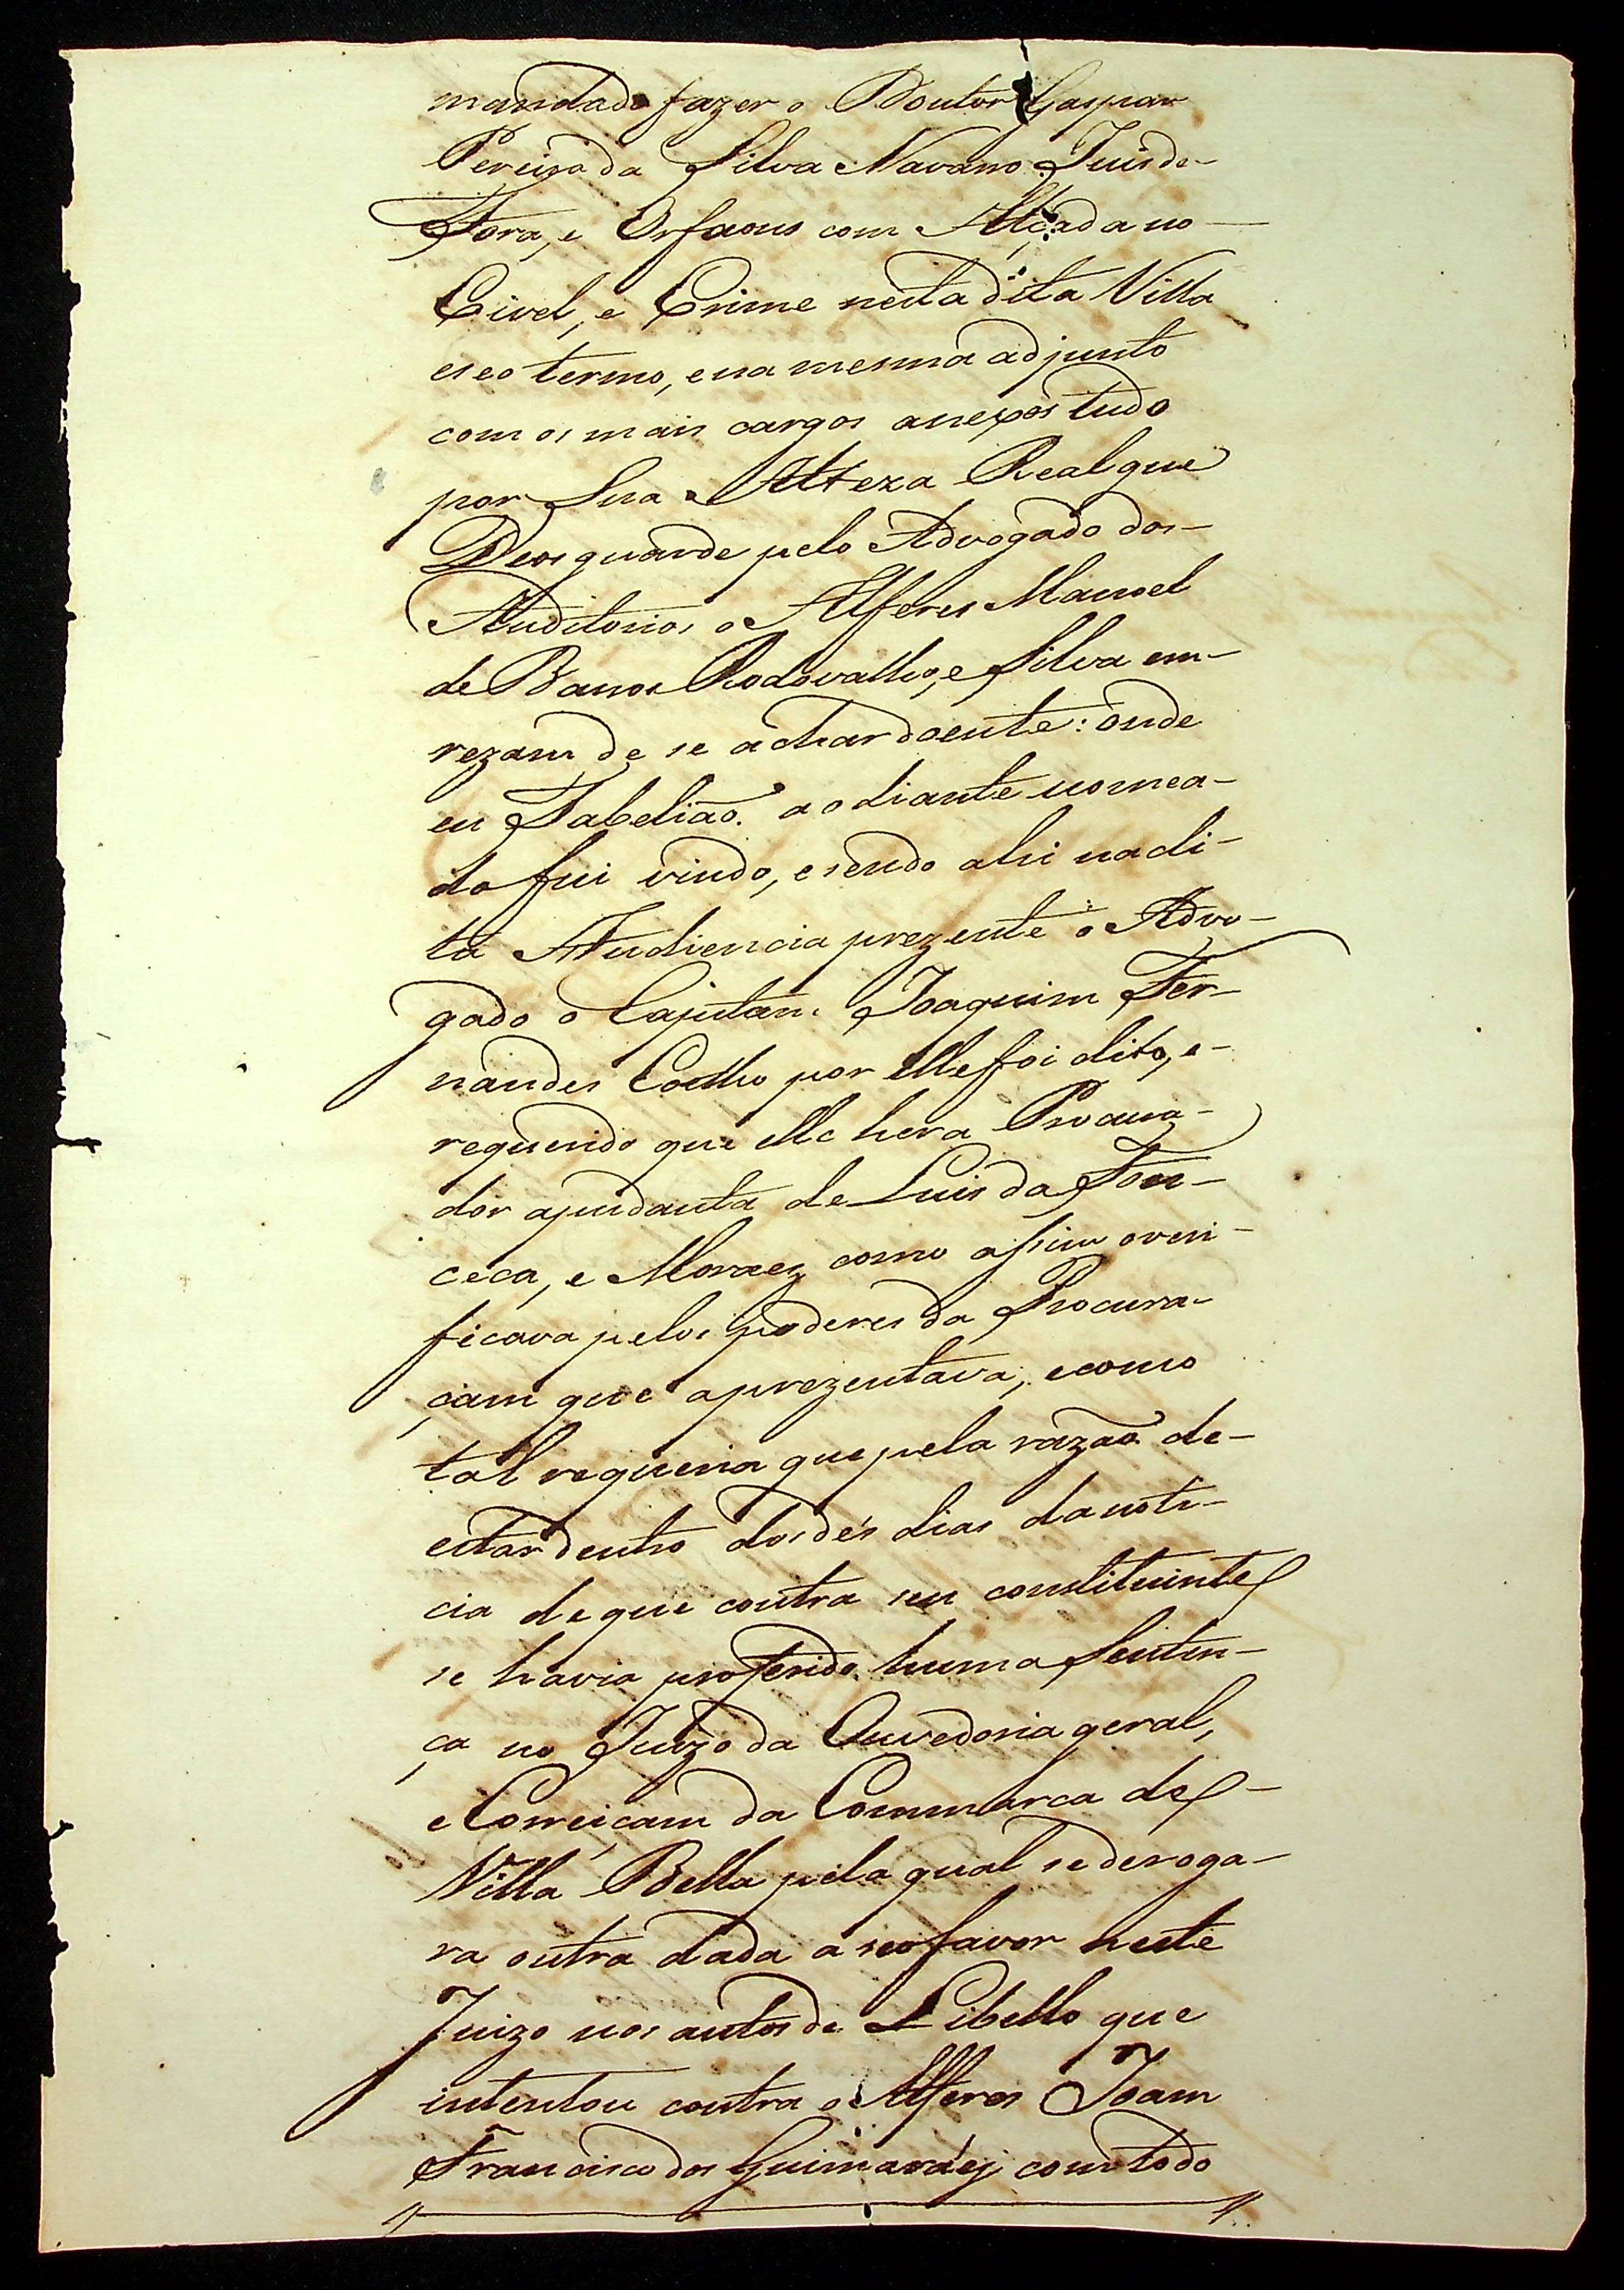 mandado fazer o Doutor Gaspar
Pereira da Silva Navarro Juis de-
Fora, e Orfaons com Alçada no-
Civel, e Crime nesta dita Villa
eseo termo, ena mesma adjunto
com os mais cargos anexos tudo
por Sua Alteza Real que
Deos guarde pelo Advogado dos-
Auditorios o Alferes Manoel
de Barros Rodovalho, e Silva em-
rezam de se achar doente: onde
eu Tabeliaõ. ao diante nomea-
do fui vindo, e sendo ahi na di-
ta Audiencia prezente o Advo-
gado o Capitam Joaquim Fer-
nandes Coelho por elle foi dito, e-
requerido que elle hera Procura-
dor ajudanta de Luis da Fon-
ceca, e Moraes, como assim overi-
ficava pelos poderes da Procura-
çam que aprezentava; ecomo
tal requeria que pela razaõ de-
estar dentro dos dés dias da noti-
cia de que contra seu constituinte
se havia proferido huma Senten-
ça no Juizo da Ouvedoria geral,
e Correiçam da Commarca de-
Villa Bella pela qual se deroga-
ra outra dada a seo favor neste
Juizo nos autos de Libello que
intentou contra o Alferes Joam
Francisco dos Guimaráes com todo